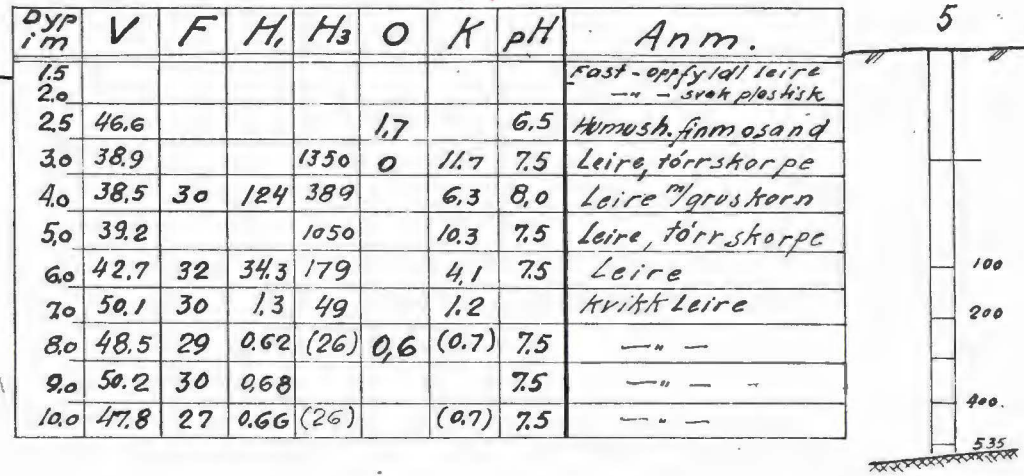 Dyp im V F H₁ H₃ O K pH Anm.
1.5 Fast - oppfyldt leire
2.0 —"— svak plastisk
2.5 46.6 1.7 6.5 Humush. finmosand
3.0 38.9 1350 0 11.7 7.5 Leire, tórrskorpe
4.0 38.5 30 124 389 6.3 8,0 Leire m/gruskorn
5,0 39.2 1050 10.3 7.5 Leire, tórrskorpe
6.0 42.7 32 34.3 179 4,1 7.5 Leire
7.0 50.1 30 1.3 49 1.2 Kvikk Leire
8.0 48.5 29 0.62 (26) 0,6 (0.7) 7.5 —"—
9.0 50.2 30 0,68 7.5 —"—
10.0 47.8 27 0.66 (26) (0.7) 7.5 —"—
5
100
200
400.
535